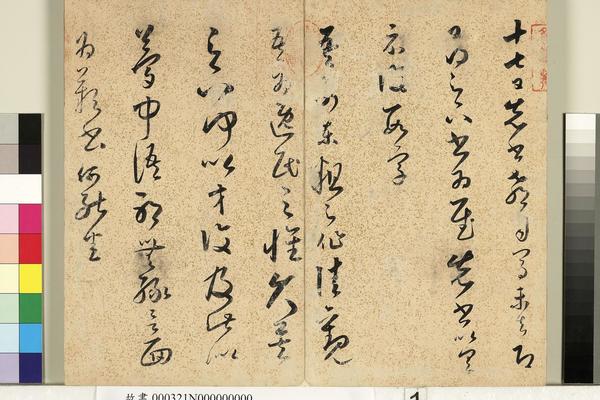 十七日先書郗司馬未去即
日得足下書為慰先書以具
示復數字
吾前東粗足作佳觀
吾為逸民之懷久矣
足下何以方復及此似
夢中語耶無緣言面
為歎書何能悉
故書 000321N000000000